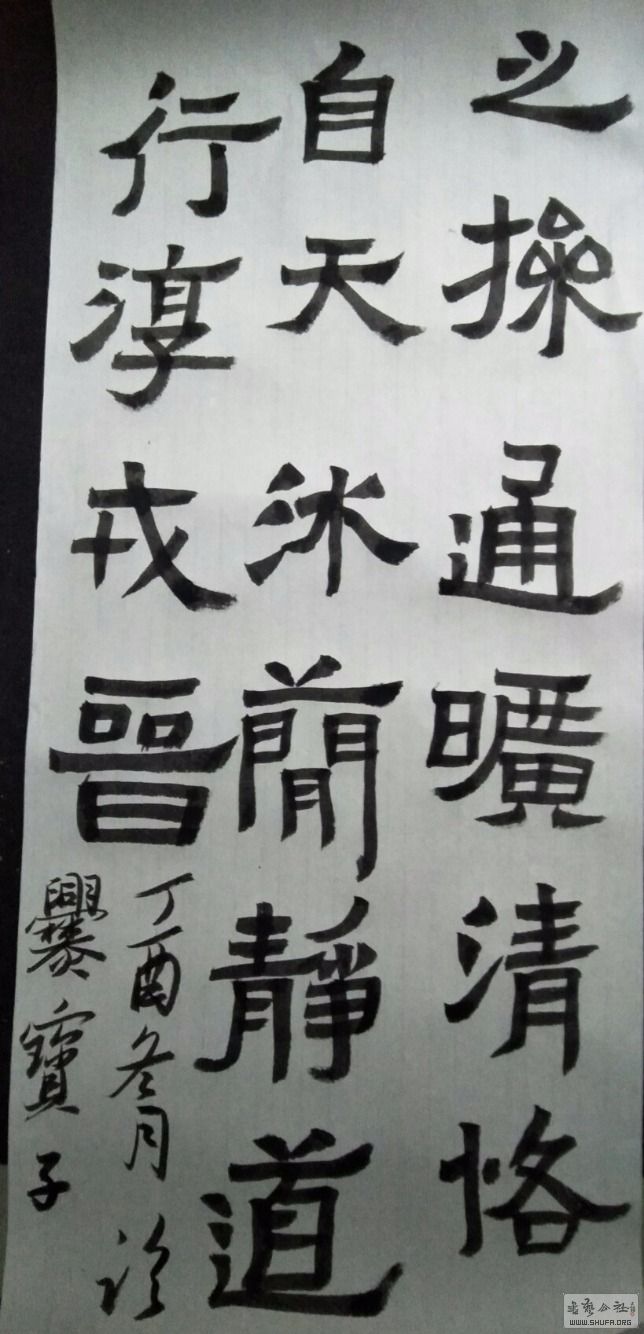 之操通曠清恪
自天冰簡靜道
行淳戎晉
丁酉冬月
爨寶子
书艺公社
WWW.SHUFA.ORG